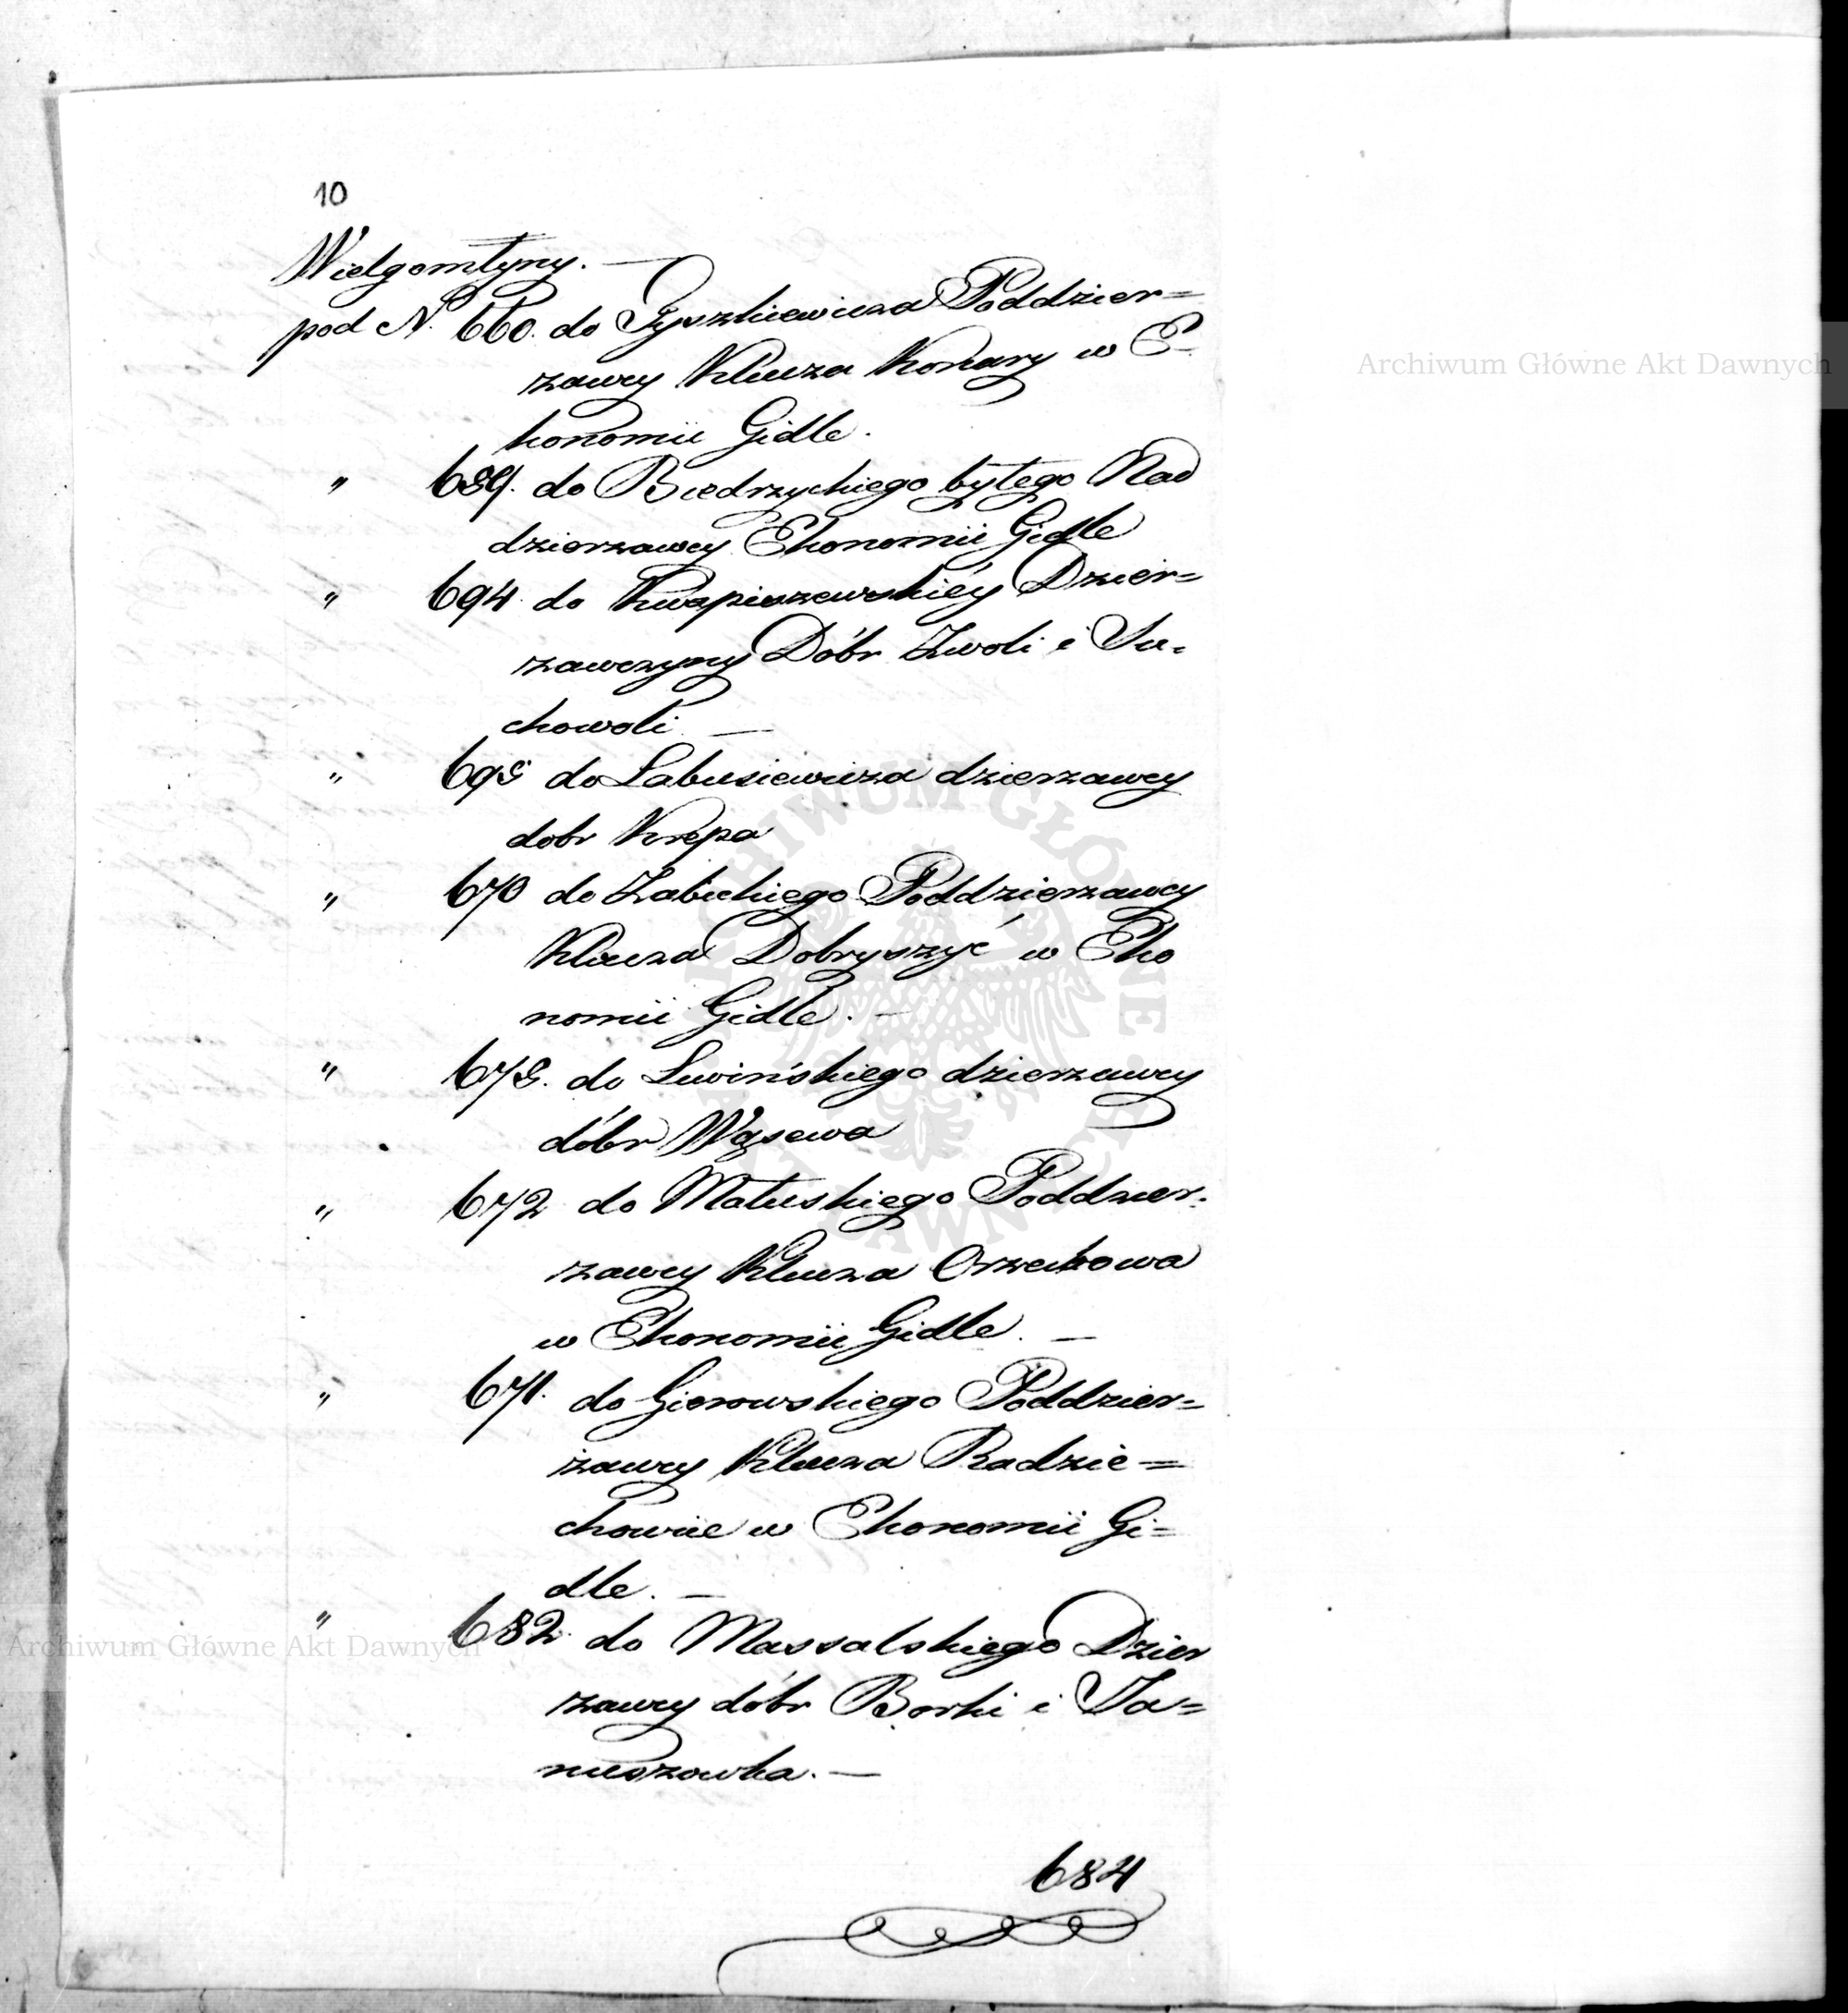 10
Wielgomłyny. —
pod N. 660. do Tyszkiewicza Poddzier=
żawcy Klucza Konary w E-
konomii Gidle.
" 689. do Biedrzyckiego byłego Nad
dzierzawcy Ekonomii Gidle
" 694. do Kwapiszewskiéy Dzier=
zawczyny Dóbr Zwoli i Su-
chowoli. —
" 695 do Labusiewicza dzierzawcy
dobr Krępa
" 670 do Zabickiego Poddzierzawcy
Klucza Dobryszyć w Eko
nomii Gidle. —
" 675. do Lewińskiego dzierzawcy
dóbr Wąsewa
" 672 do Matuskiego Poddzier-
zawcy Klucza Orzechowa
w Ekonomii Gidle. —
" 671. do Gierowskiego Poddzier=
żawcy Klucza Radzie=
chowie w Ekonomii Gi=
dle. —
" 682. do Massalskiego Dzier
zawcy dóbr Borki i Ja=
nuszowka. —
684
Archiwum Główne Akt Dawnych
Archiwum Główne Akt Dawnych
ARCHIWUM GŁÓWNE AKT DAWNYCH